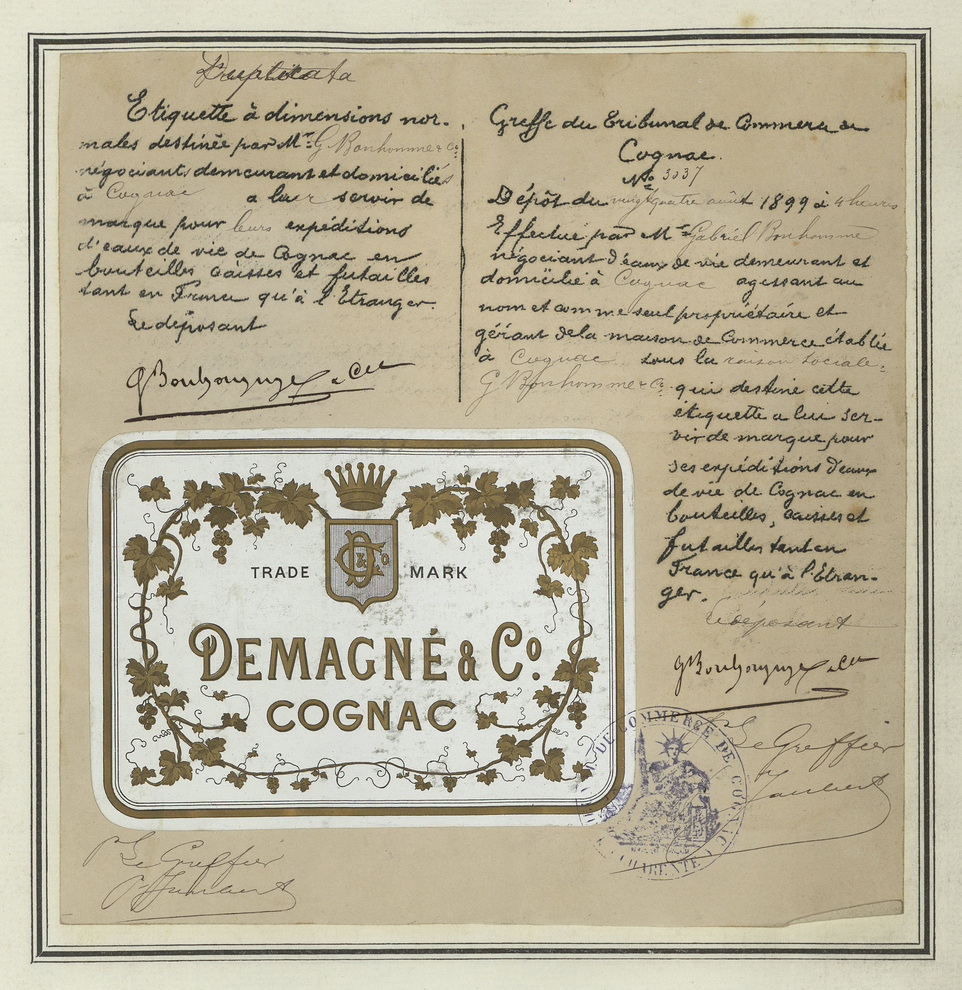 Duplicata
Etiquette à dimensions nor-
males destinée par Mr. G Bonhomme & Co
négociants demeurant et domiciliés
à Cognac a leur servir de
marque pour leurs expéditions
d'eaux de vie de Cognac en
bouteilles caisses et futailles
tant en France qu'à l'Etranger.
Le déposant
G Bonhomme & Cie
Greffe du Tribunal de Commerce de
Cognac.
No 3037
Dépôt du vingt quatre août 1899 à 4 heures
Effectué par Mr Gabriel Bonhomme
négociant d'eaux de vie demeurant et
domicilié à Cognac agissant au
nom et comme seul propriétaire et
gérant de la maison de Commerce établie
à Cognac sous la raison sociale:
G Bonhomme & Co. qui destine cette
étiquette a lui ser-
vir de marque pour
ses expéditions d'eaux
de vie de Cognac en
bouteilles, caisses et
futailles tant en
France qu'à l'Etran-
ger.
Le déposant
G Bonhomme & Cie
TRADE MARK
DEMAGNÉ & Co.
COGNAC
DE COMMERCE DE COGNAC
CHARENTE
Pr Le Greffier
Pr Le Greffier